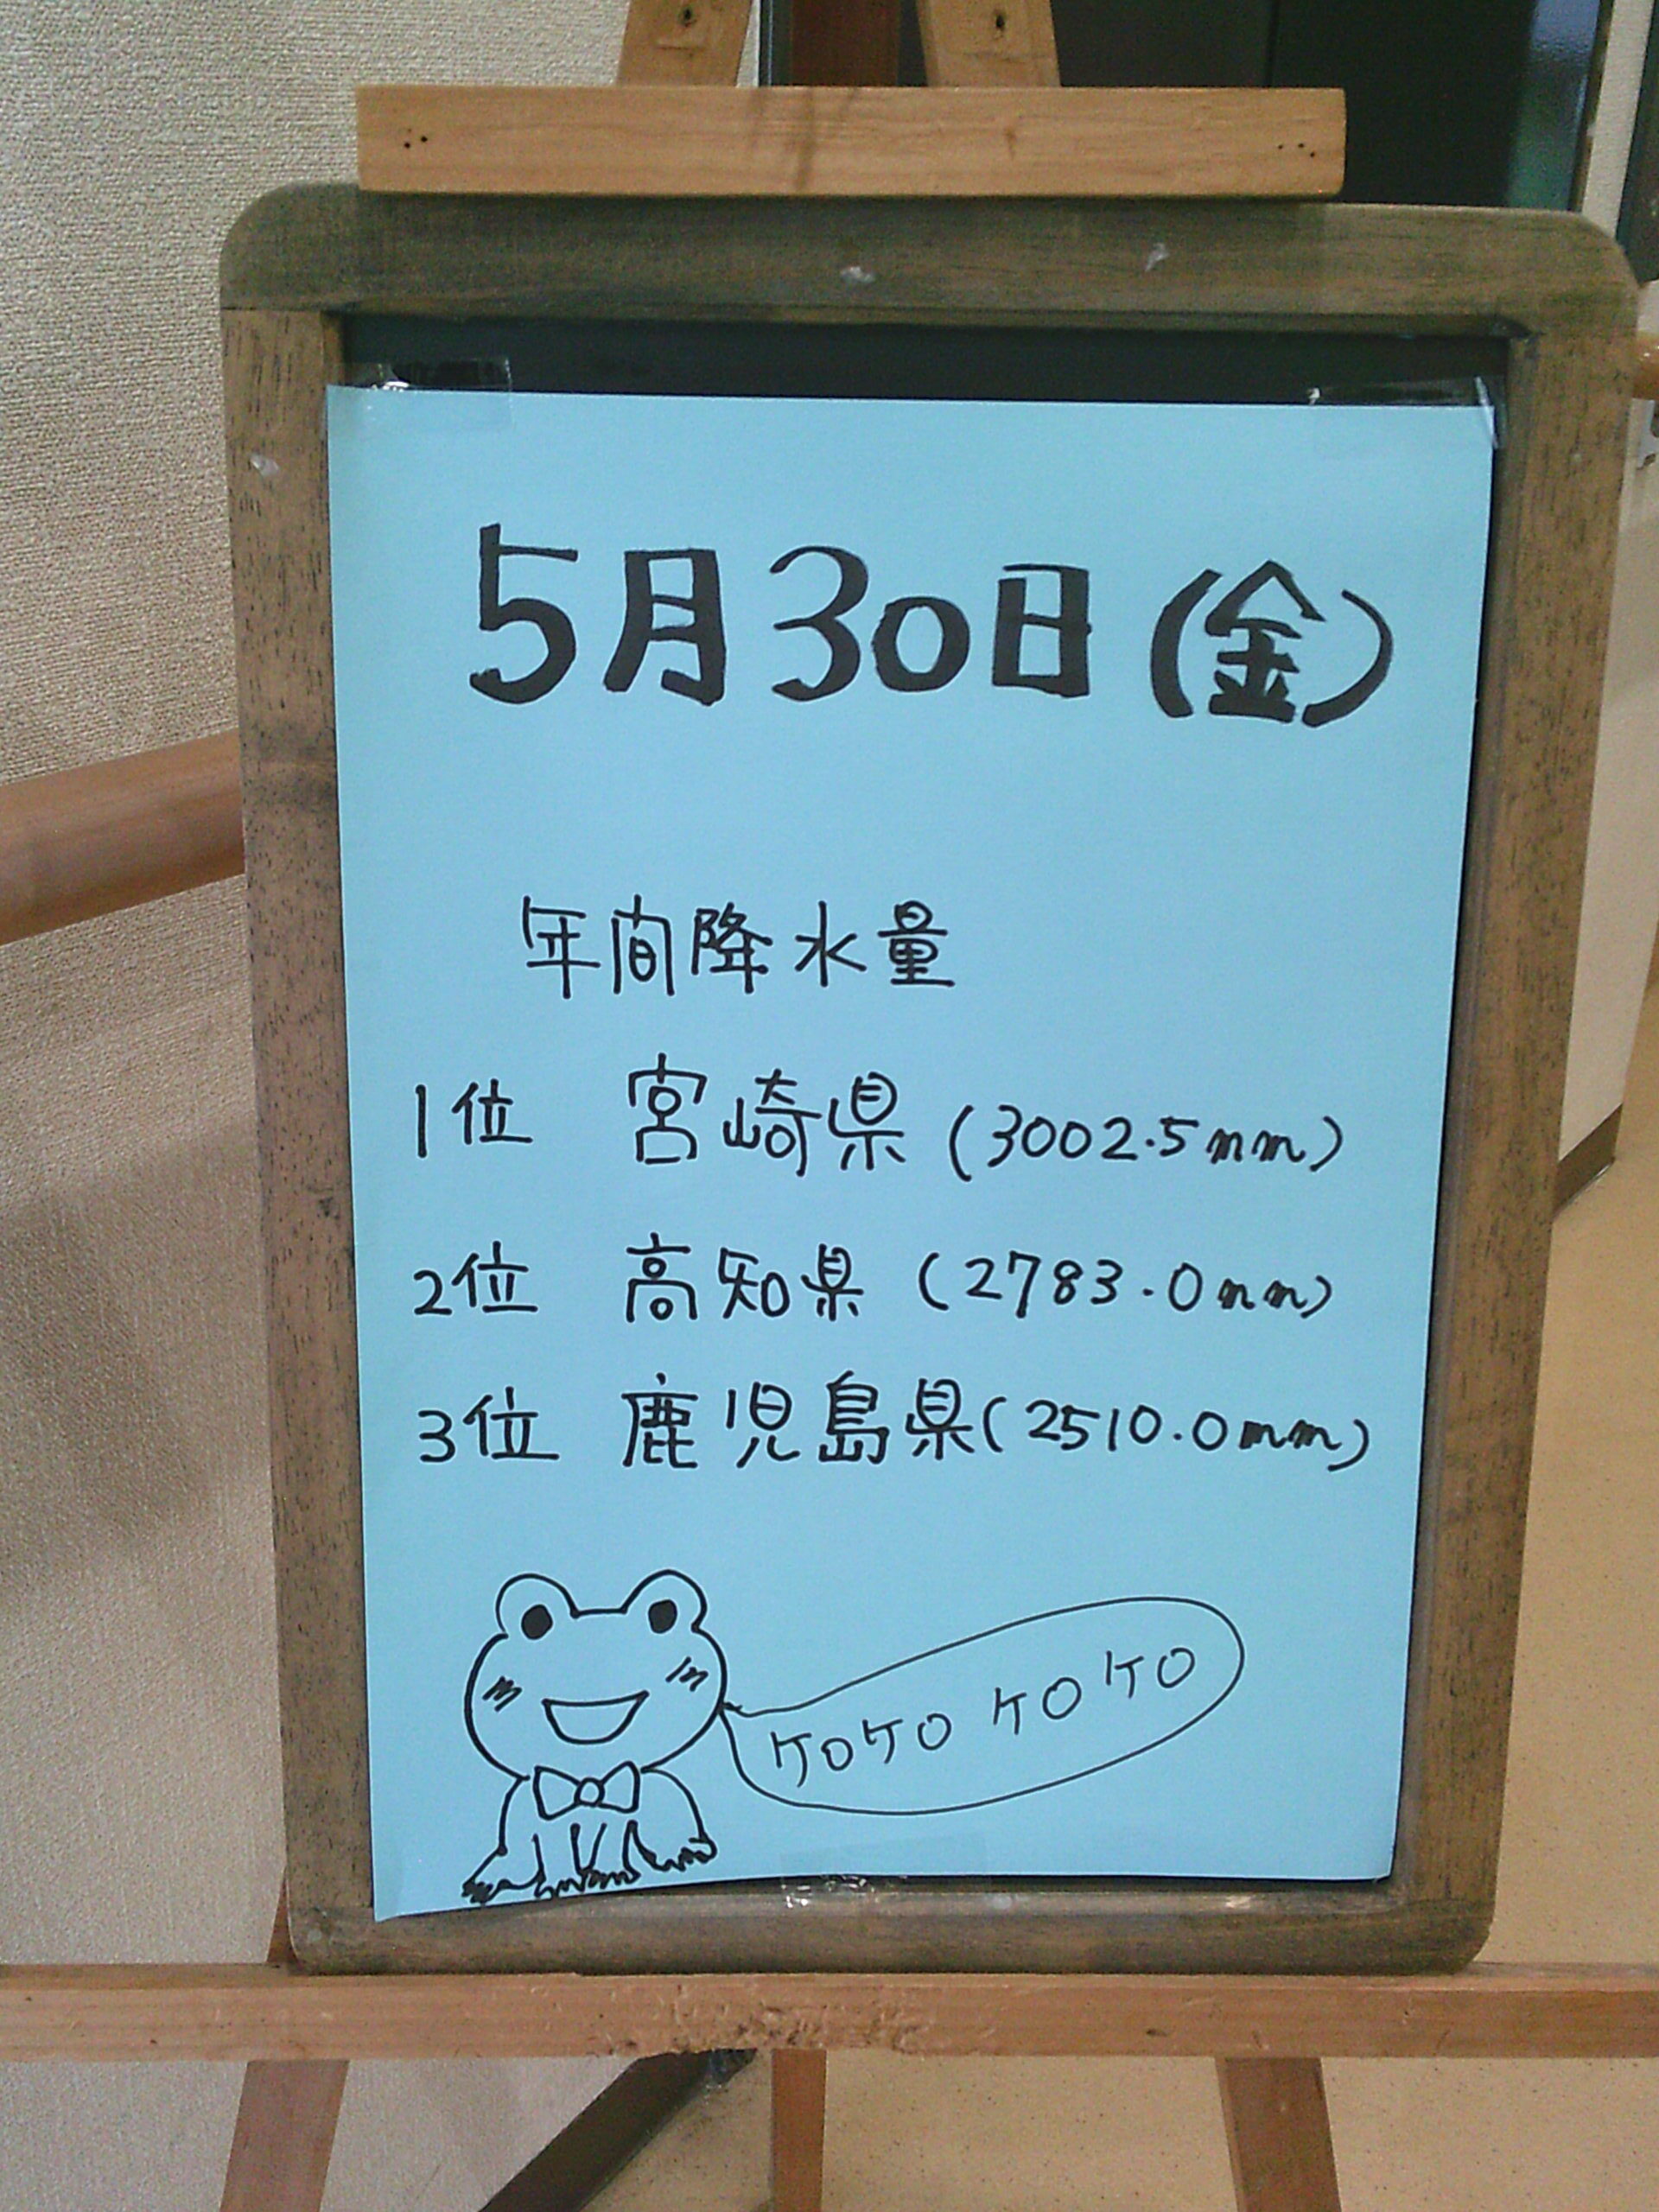 5月30日(金)
年間降水量
1位 宮崎県 (3002.5mm)
2位 高知県 (2783.0mm)
3位 鹿児島県(2510.0mm)
ケロケロ ケロケロ